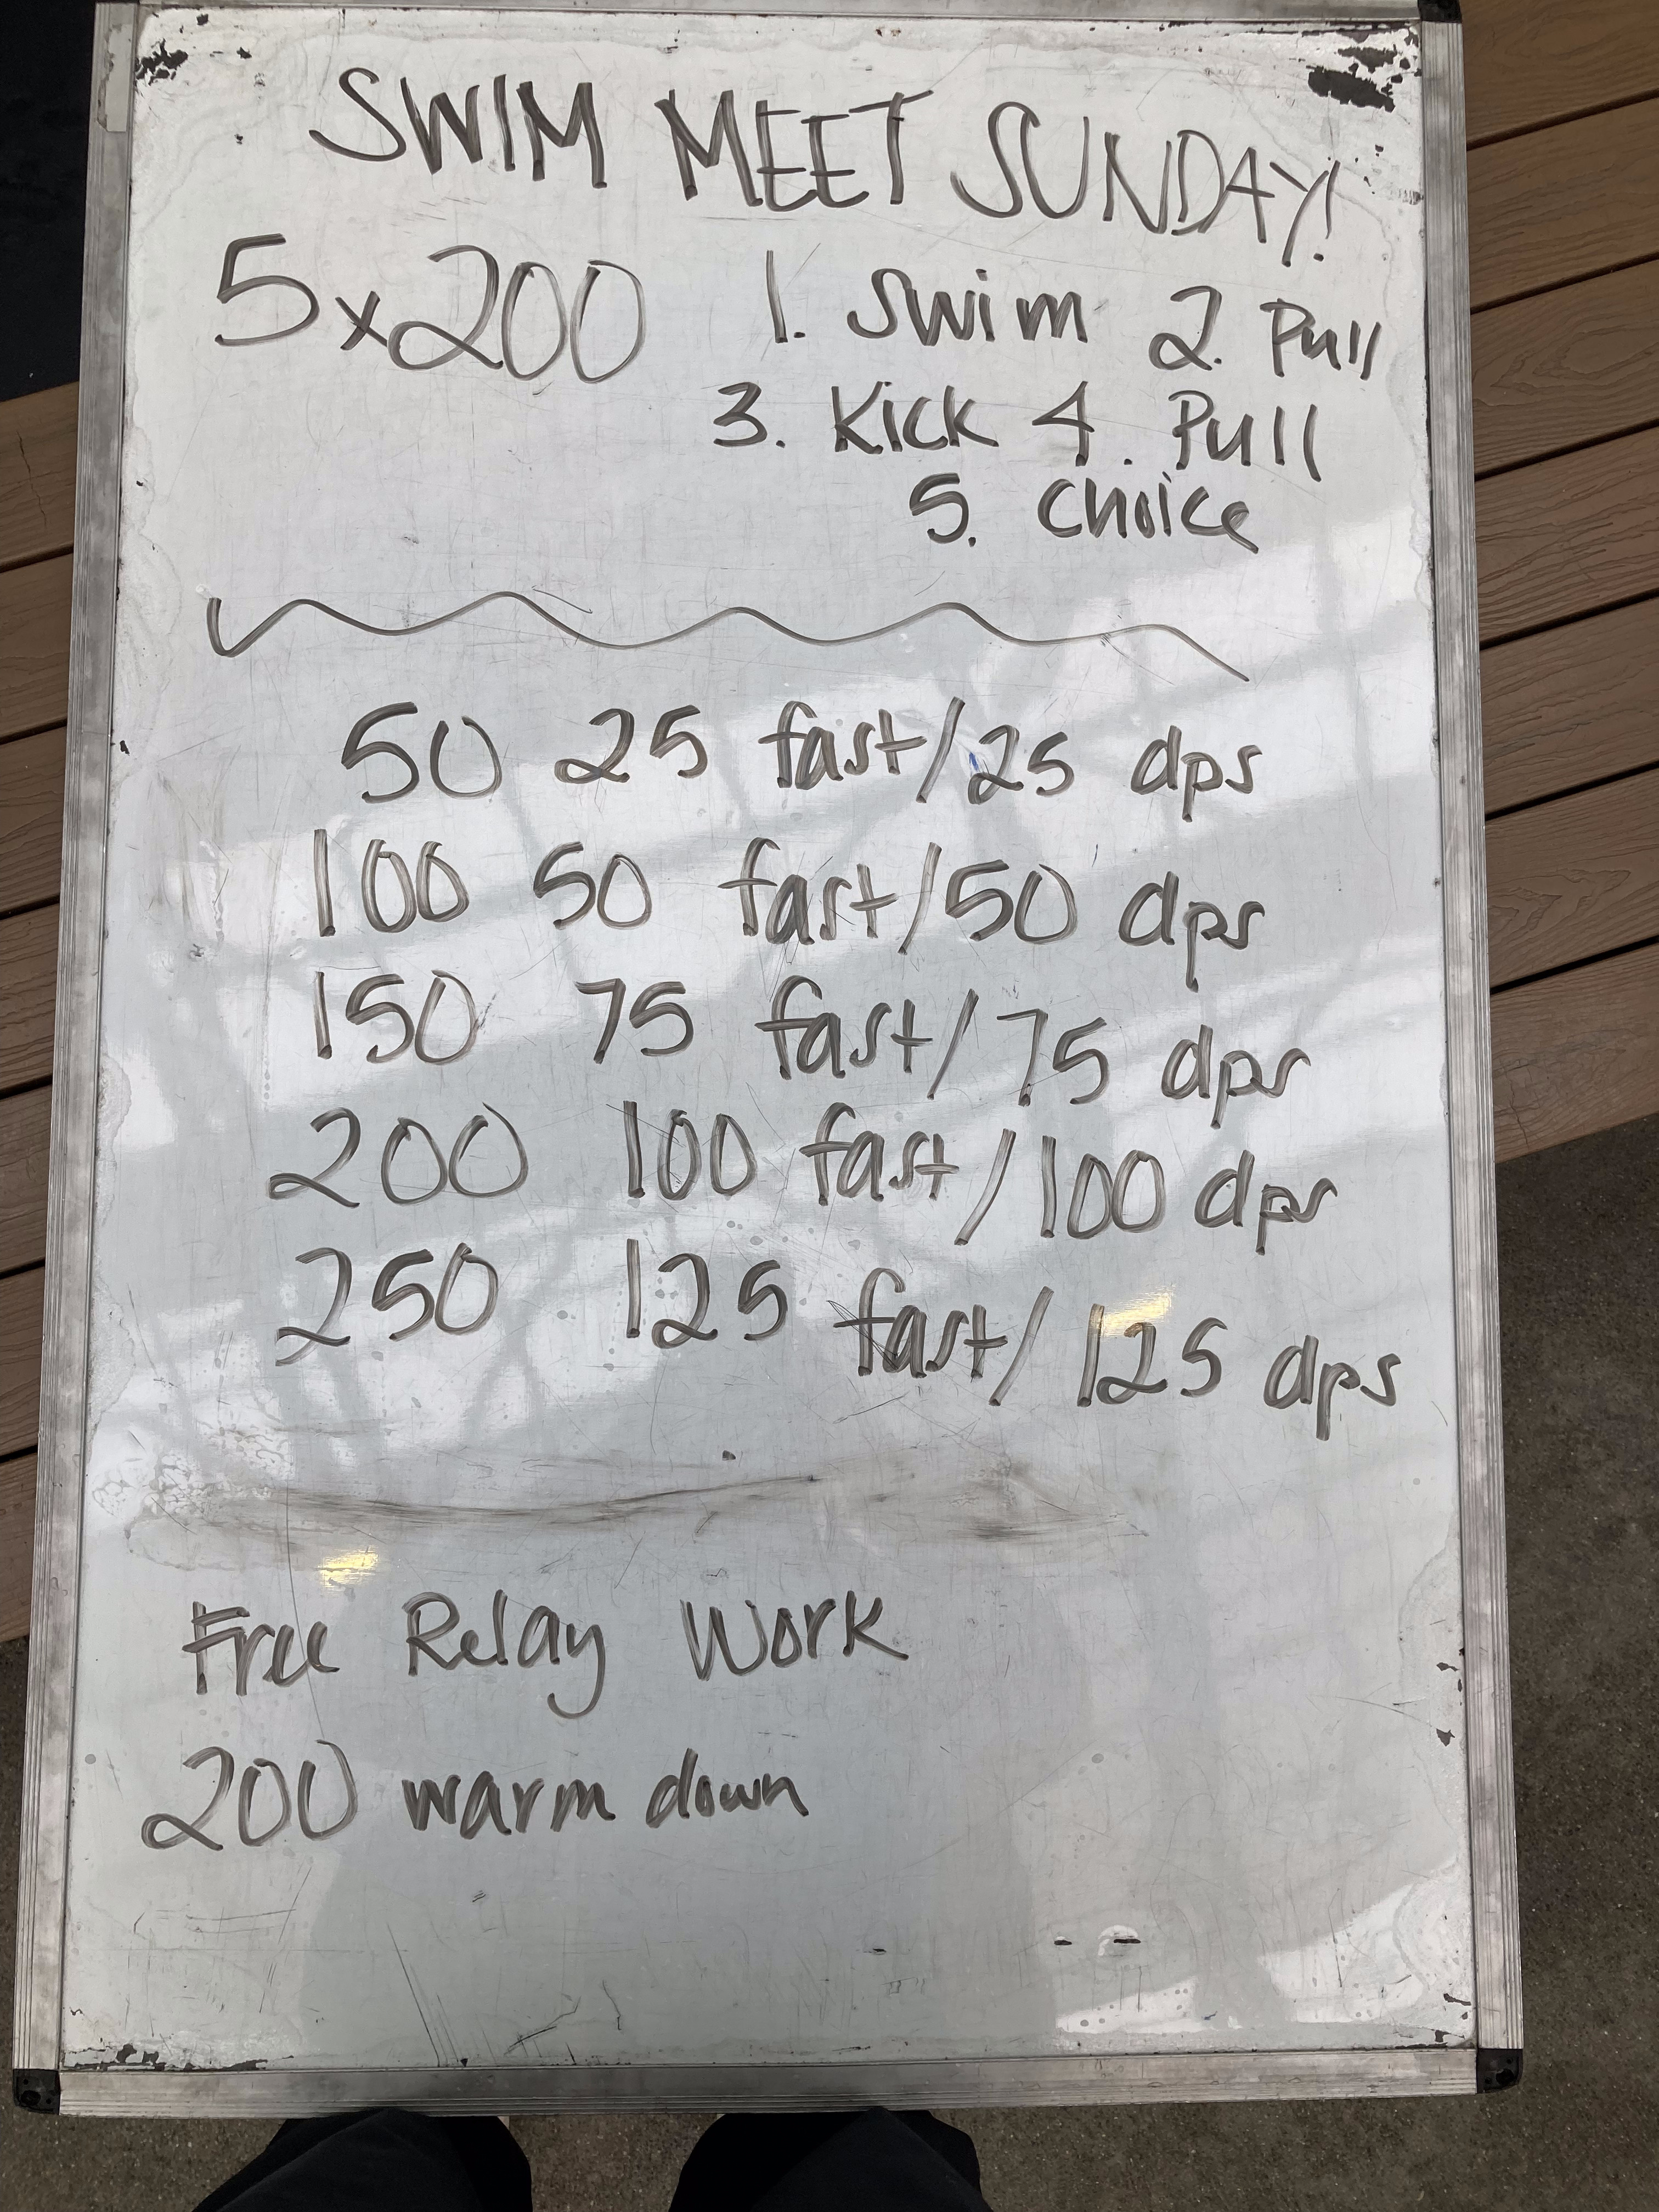 SWIM MEET SUNDAY!
5x200 1. Swim 2. Pull
3. Kick 4. Pull
5. Choice
50 25 fast/25 dps
100 50 fast/50 dps
150 75 fast/75 dps
200 100 fast/100 dps
250 125 fast/125 dps
Free Relay Work
200 warm down